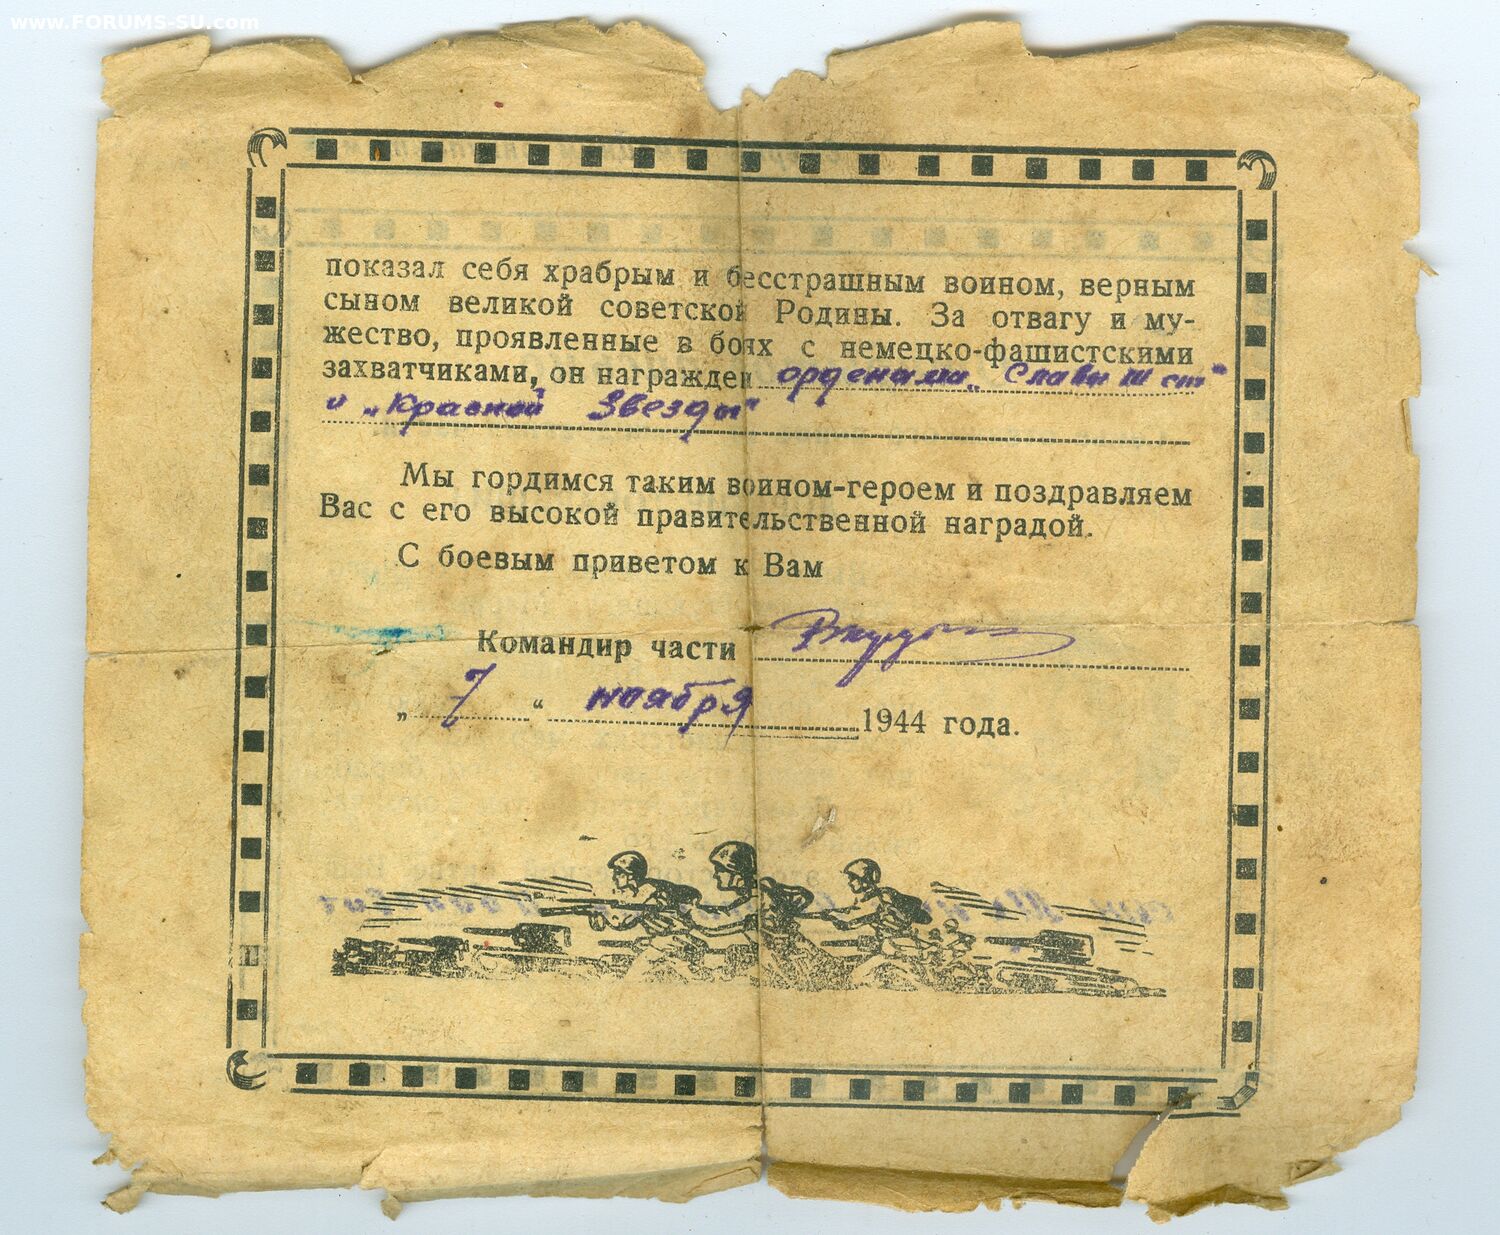 www.FORUMS-SU.com
показал себя храбрым и бесстрашным воином, верным
сыном великой советской Родины. За отвагу и му-
жество, проявленные в боях с немецко-фашистскими
захватчиками, он награжден орденами „Славы III ст"
и „Красной Звезды"
Мы гордимся таким воином-героем и поздравляем
Вас с его высокой правительственной наградой.
С боевым приветом к Вам
Командир части
„ 7 “ ноября 1944 года.